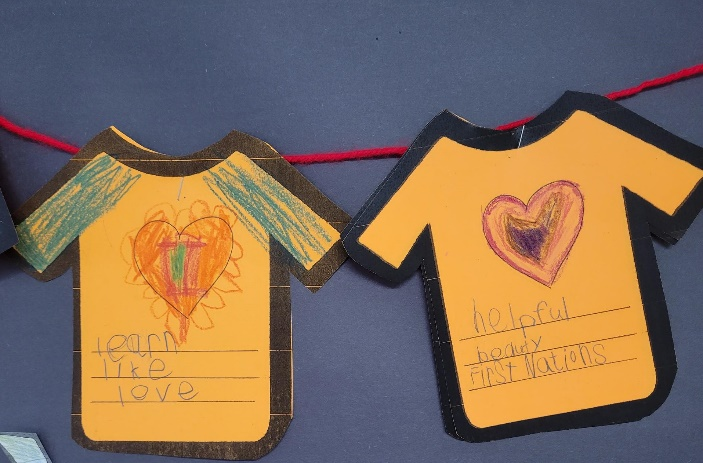 learn
like
love
helpful
beauty
First Nations